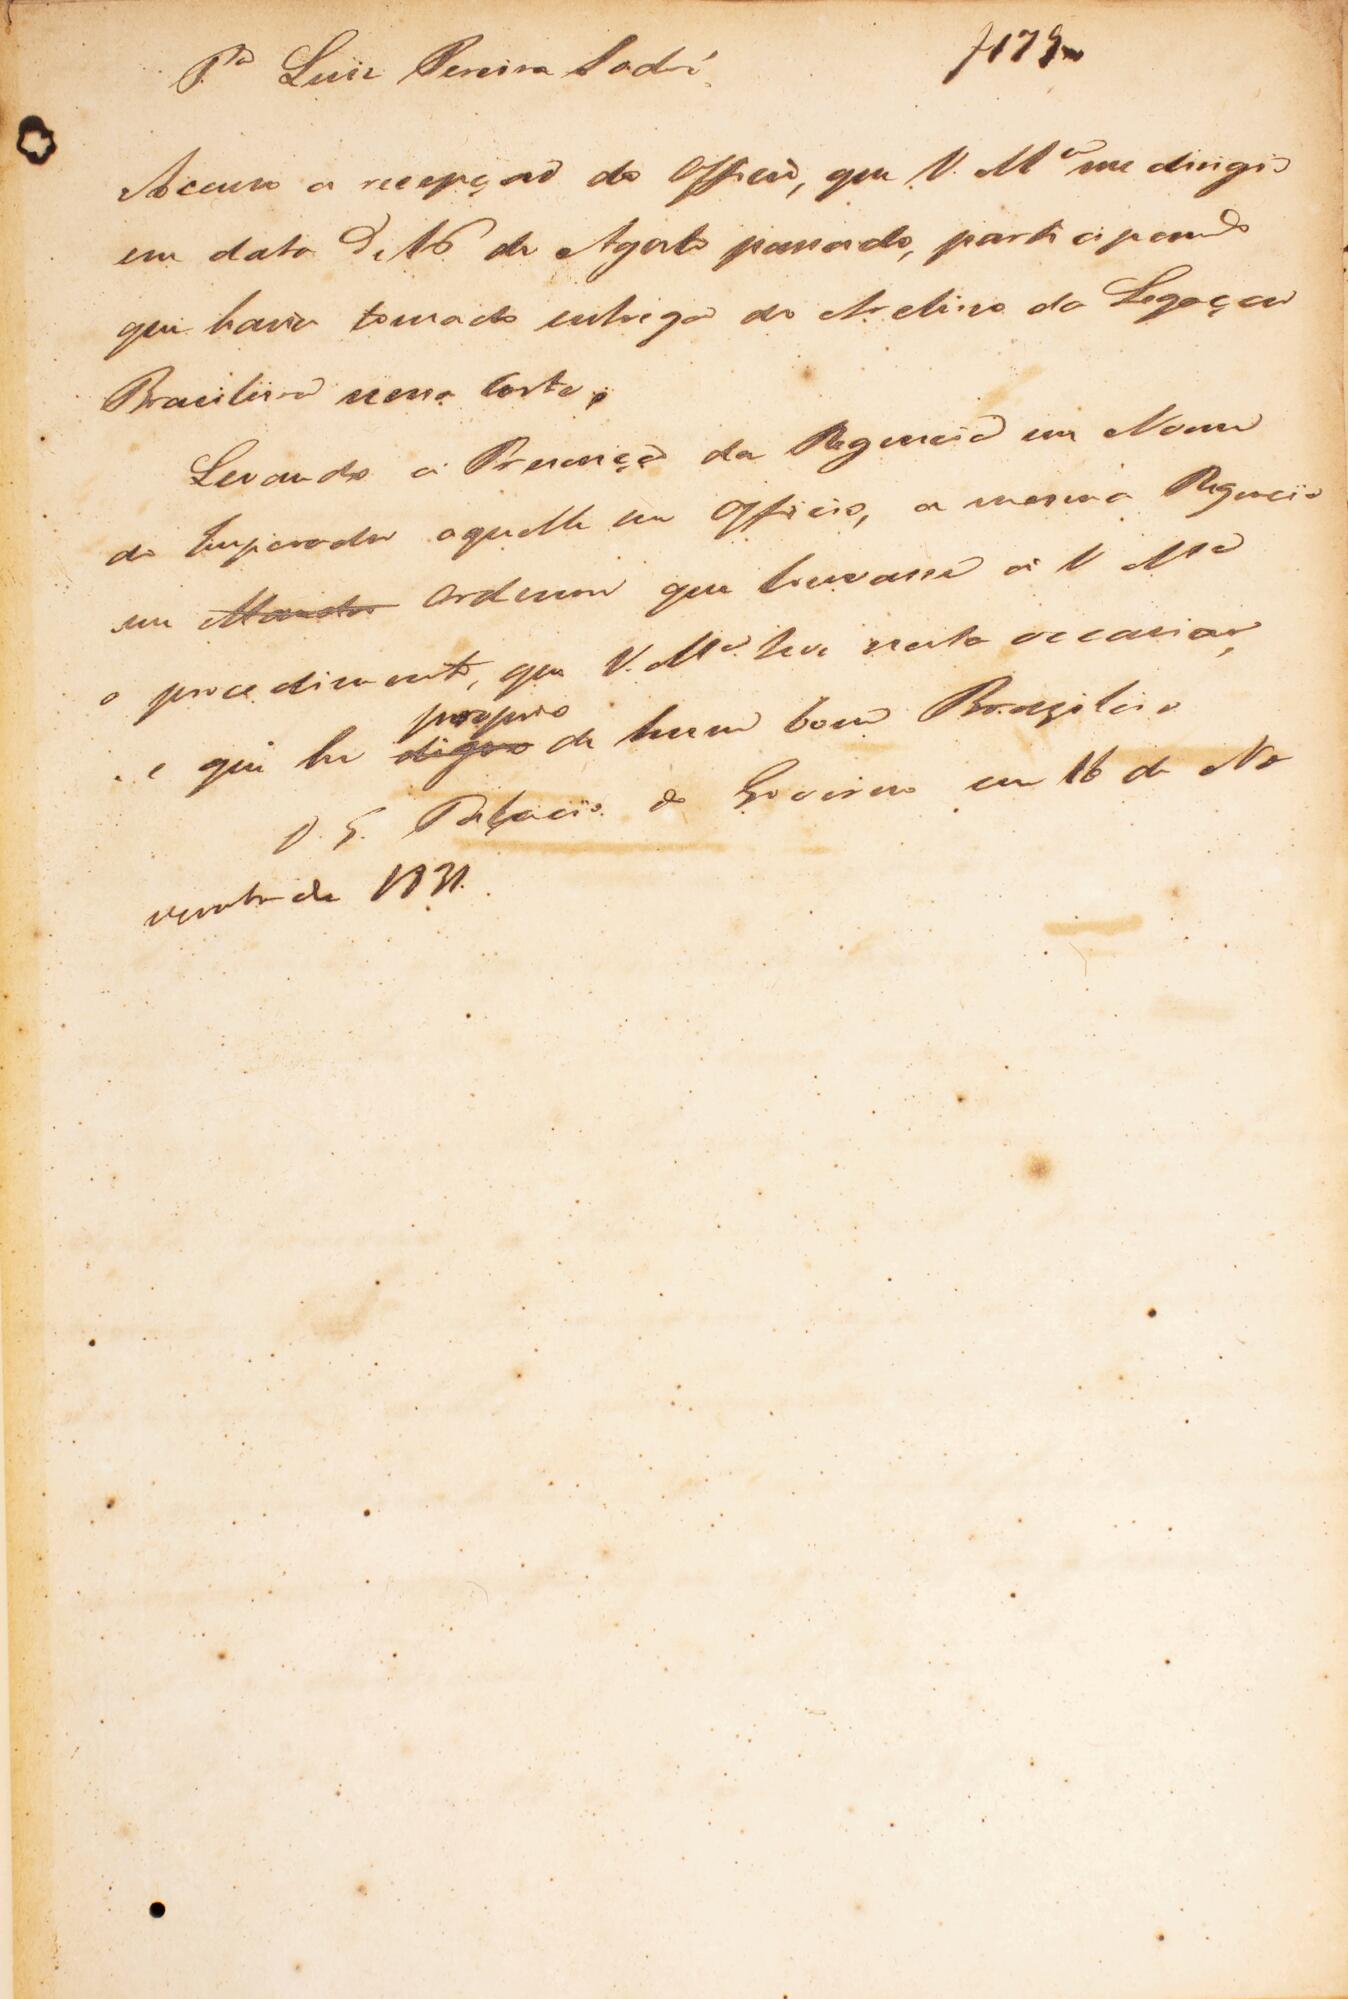 Pª Luiz Pereira Sodré
Accuso a recepção do Officio, que V. Mce me dirigio
em data de 16 de Agosto passado, participando
que havia tomado entrega do Archivo da Legação
Brasileira nessa Corte.
Levando á Presença da Regencia em Nome
do Imperador aquelle seu Officio, a mesma Regencia
me Manda Ordenou que louvasse á V Mce
o procedimento, que V. Mce teve nesta occasião,
proprio
e que he digno de hum bom Brazileiro
D. G. Palacio do Governo em 16 de No
vembro de 1831.